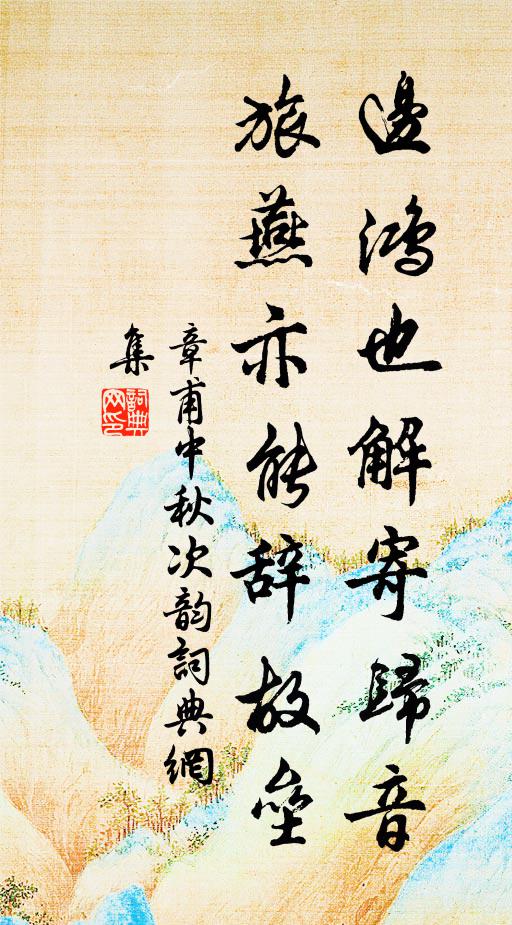 邊鴻也解寄歸音
旅燕亦能辞故壘
章甫中秋次韵詞典網
集
詞典网印